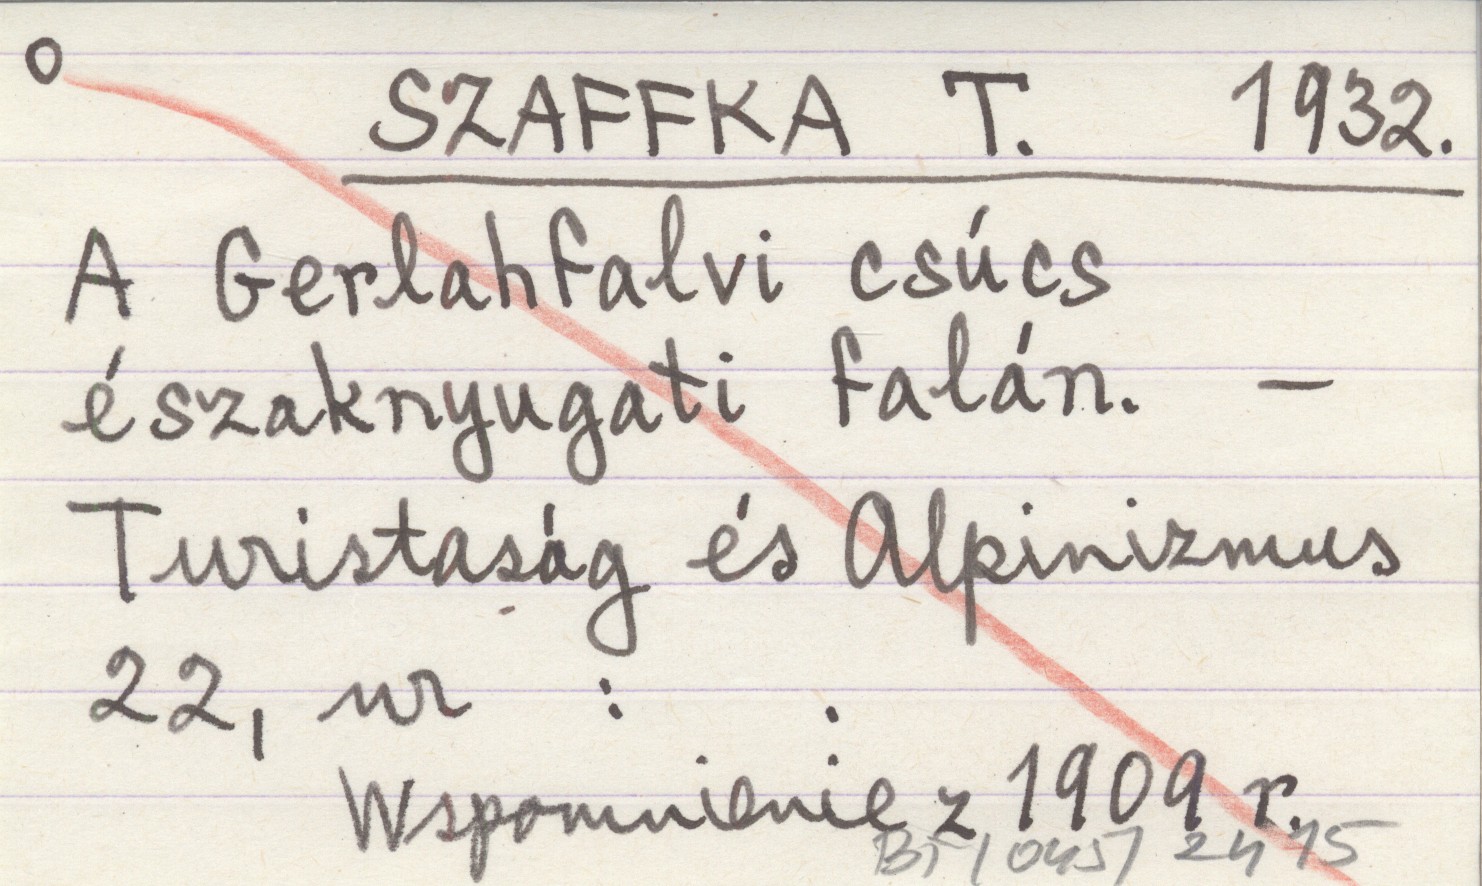 O
SZAFFKA T. 1932.
A Gerlahfalvi csúcs
északnyugati falán. —
Turistaság és Alpinizmus
22, nr : .
Wspomnienie z 1909 r.